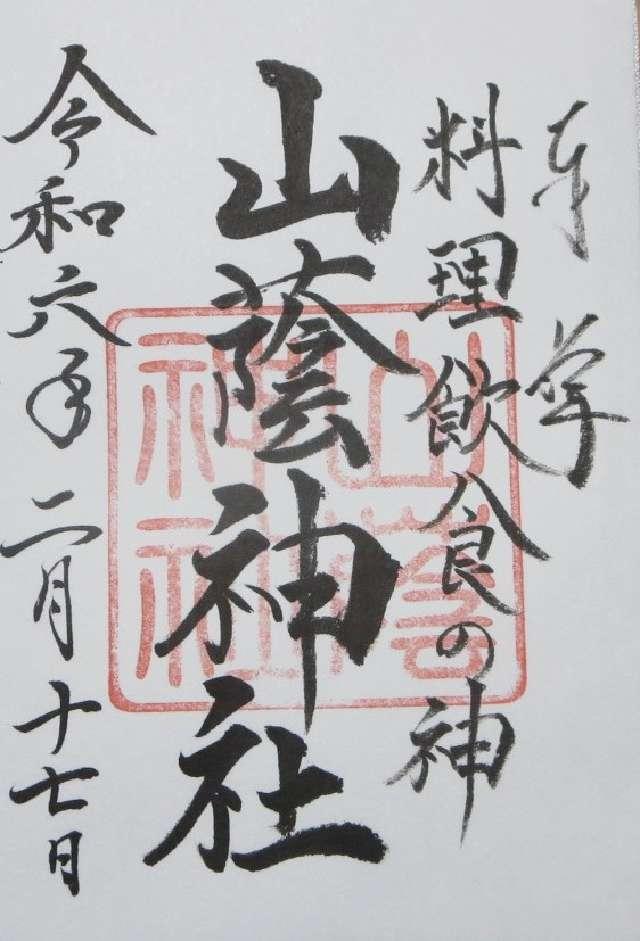 奉拝
料理飲食の神
山蔭神社
令和六年二月十七日
山蔭
神社